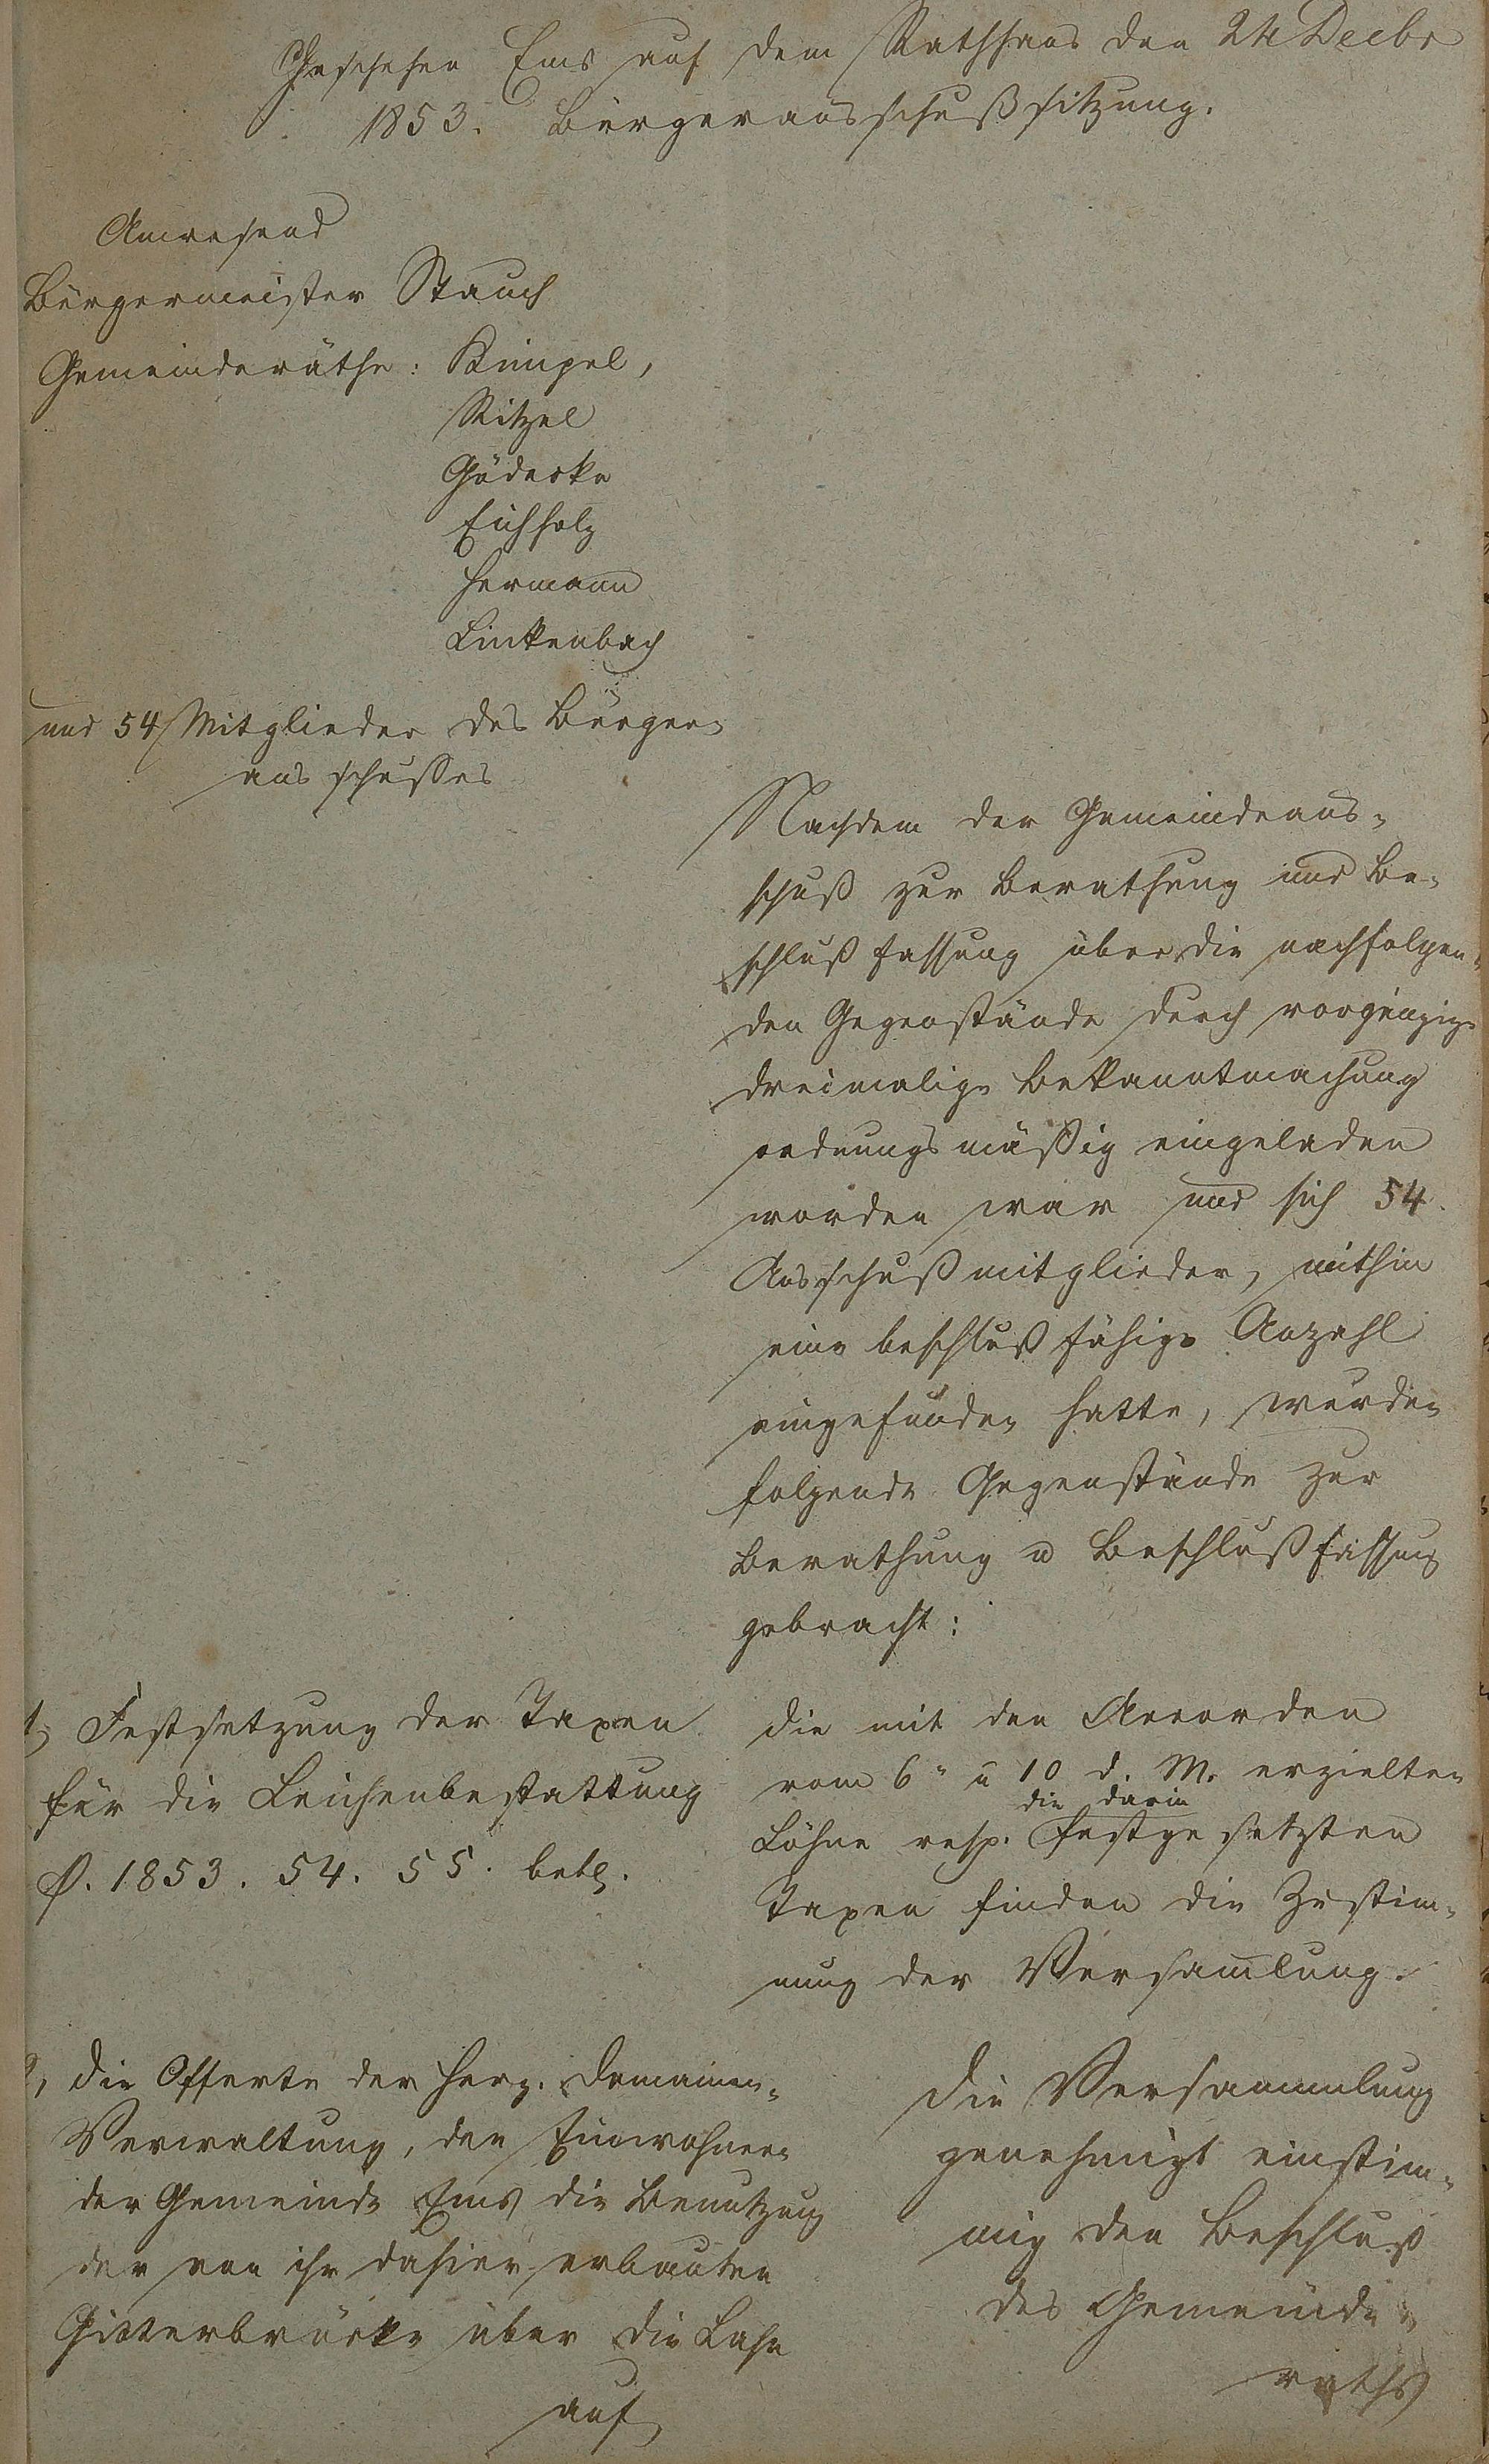 Geschehen Ems auf dem Rathhaus den 24 Decbr
1853. Bürgerausschußsitzung.
Anwesend
Bürgermeister Stauch
Gemeinderäthe: Kimpel,
Ritzel
Gödecke
Eichholz
Hermann
Linkenbach
und 54 Mitglieder des Bürger-
ausschusses
Nachdem der Gemeindeaus-
schuß zur Berathung und Be-
schlußfassung über die nachfolgen-
den Gegenstände durch vorgängige
dreimalige Bekanntmachung
ordnungsmäßig eingeladen
worden war und sich 54
Ausschußmitglieder, mithin
eine beschlußfähige Anzahl
eingefunden hatte, wurden
folgende Gegenstände zur
Berathung u Beschlußfassung
gebracht:
1, Festsetzung der Taxen
für die Leichenbestattung
p. 1853. 54. 55. betr.
die mit den Accorden
vom 6" u 10 d. M. erzielten
die darin
Löhne resp. festgesetzten
Taxen finden die Zustim-
mung der Versamlung.
2, die Offerte der Herz. Domainen-
Verwaltung, den Einwohnern
der Gemeinde Ems die Benutzung
der von ihr dahier erbauten
Gitterbrücke über die Lahn
auf
Die Versammlung
genehmigt einstim-
mig den Beschluß
des Gemeinde-
raths